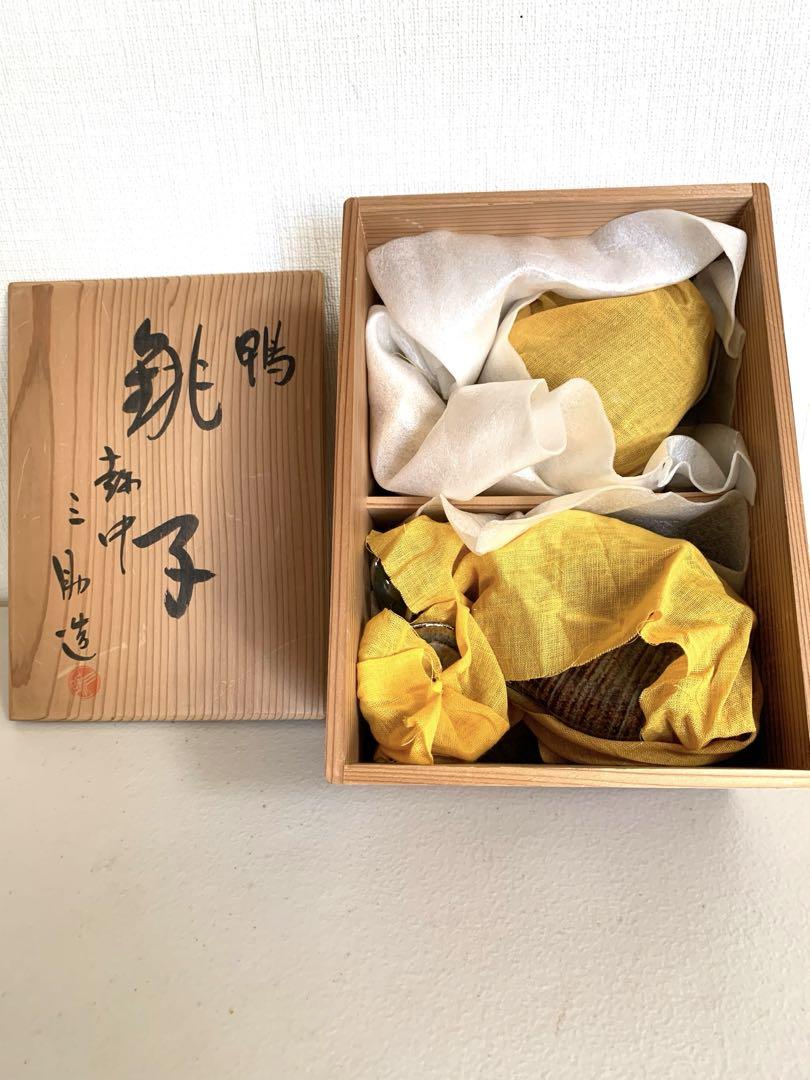 鴨
銚子
赫中
三助造